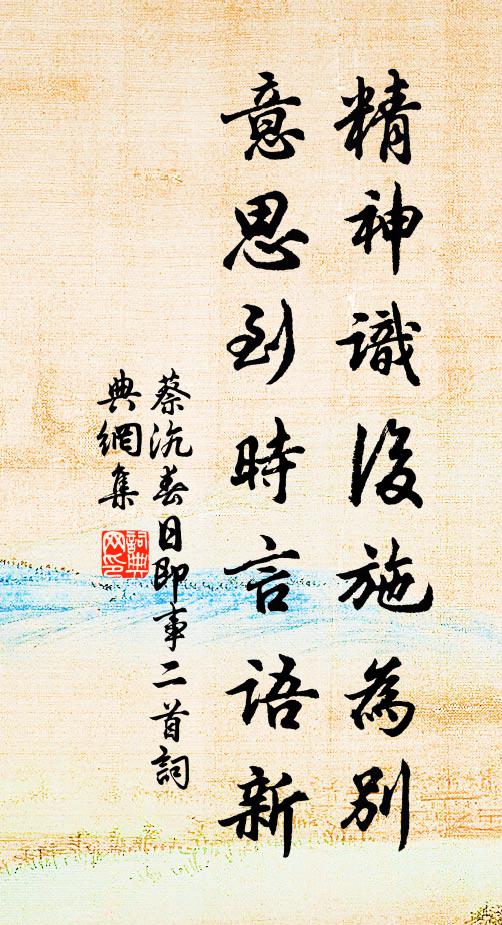 精神識後施為別
意思到時言語新
蔡沈春日即事二首詞
典網集
詞典
网印